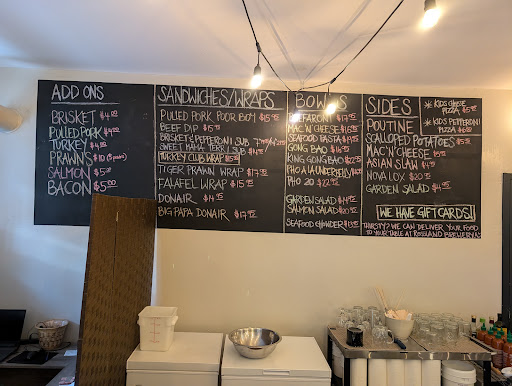 ADD ONS
BRISKET $4.00
PULLED PORK $4.00
TURKEY $4.00
PRAWN'S $10
SALMON $5.00
BACON $5.00
SANDWICHES/WRAPS
PULLED PORK POOR BOY $15
BEEF DIP $15
BRISKET & PEPPERONI SUB
SWEET MAMA TERI SUB
TURKEY CLUB WRAP $15
TIGER PRAWN WRAP $17
FALAFEL WRAP $15
DONAIR $14
BIG PAPA DONAIR $17
BOWLS
BEEFARONI $17
MAC'N'CHEESE
SEAFOOD PASTA
GONG BAO
KING GONG BAO $22
PHO
PHO 20 $22
GARDEN SALAD
SALMON SALAD $20
SEAFOOD CHOWDER
SIDES
POUTINE
SCALLOPED POTATOES
MAC'N'CHEESE
ASIAN SLAW $4
NOVA LOX $20
GARDEN SALAD
* KIDS CHEESE PIZZA
* KIDS PEPPERONI PIZZA
WE HAVE GIFT CARDS!
THIRSTY? WE CAN DELIVER YOUR FOOD
TO YOUR TABLE AT ROSSLAND BREWERY